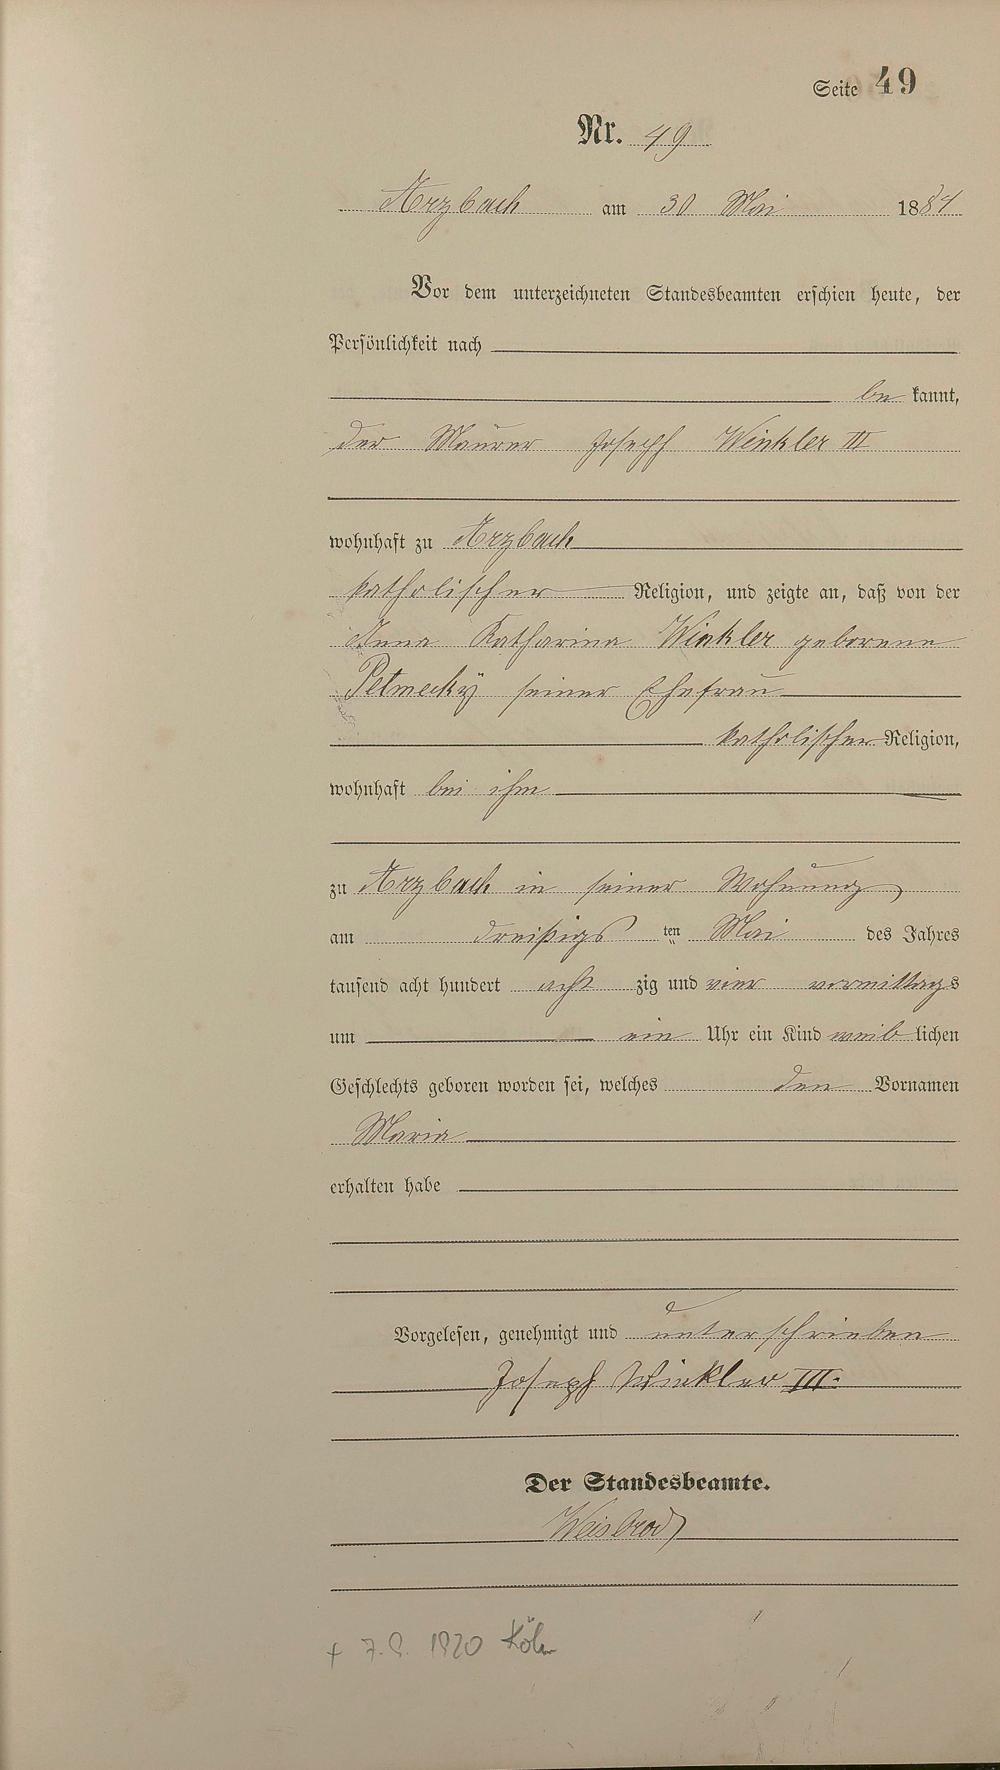 Seite 49
Nr. 49
Arzbach am 30 Mai 1884
Vor dem unterzeichneten Standesbeamten erschien heute, der
Persönlichkeit nach
be kannt,
der Maurer Joseph Winkler III
wohnhaft zu Arzbach
katholischer Religion, und zeigte an, daß von der
Anna Katharina Winkler geborene
Petmecky seiner Ehefrau
katholischer Religion,
wohnhaft bei ihm
zu Arzbach in seiner Wohnung,
am dreißigs ten Mai des Jahres
tausend acht hundert acht zig und vier vormittags
um ein Uhr ein Kind weib lichen
Geschlechts geboren worden sei, welches den Vornamen
Maria
erhalten habe
Vorgelesen, genehmigt und unterschrieben
Joseph Winkler III.
Der Standesbeamte.
Weisbrod
+ 7. 1920 Köln